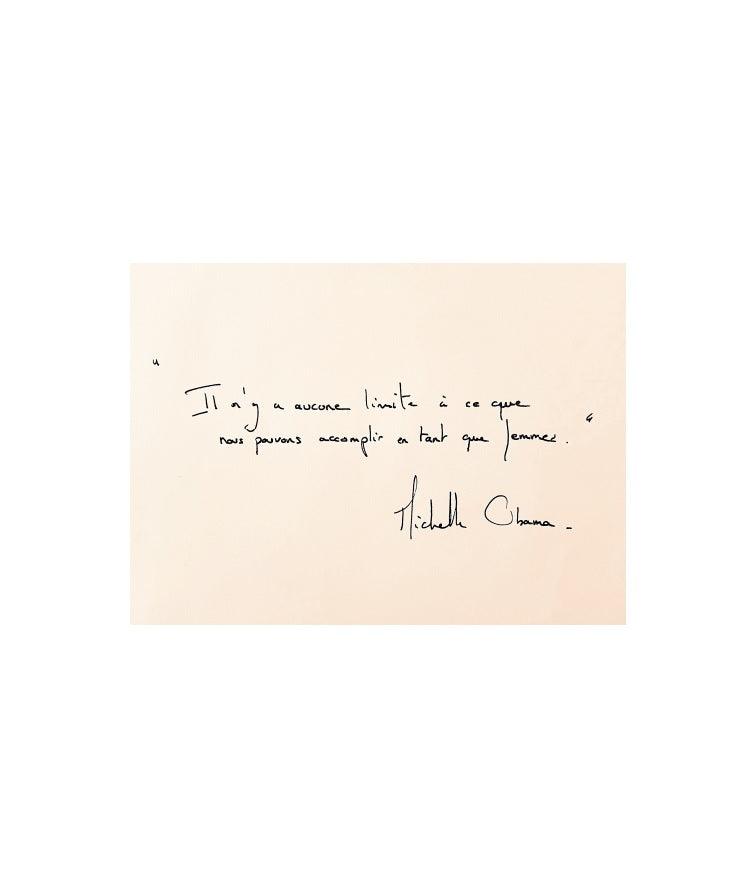 "
Il n'y a aucune limite à ce que
nous pouvons accomplir en tant que femmes. "
Michelle Obama -